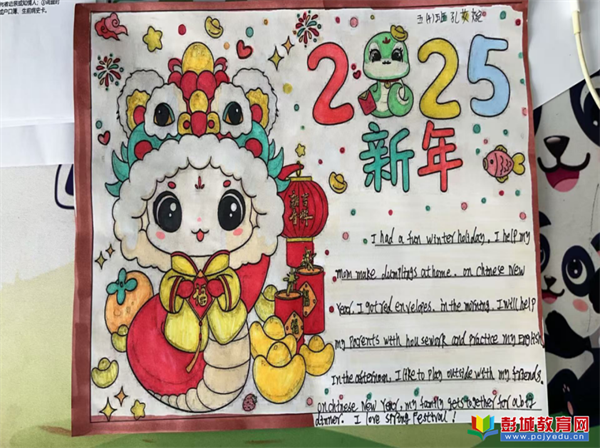 2025
新年
I had a fun winter holiday. I help my
mom make dumplings at home. on Chinese New
Year. I got red envelopes. in the morning. I will help
my parents with housework and practice my English
In the afternoon. I like to play outside with my friends.
on chinese New Year, my family gets together for our
dinner. I love spring Festival!
彭城教育网
www.pcjyedu.cn